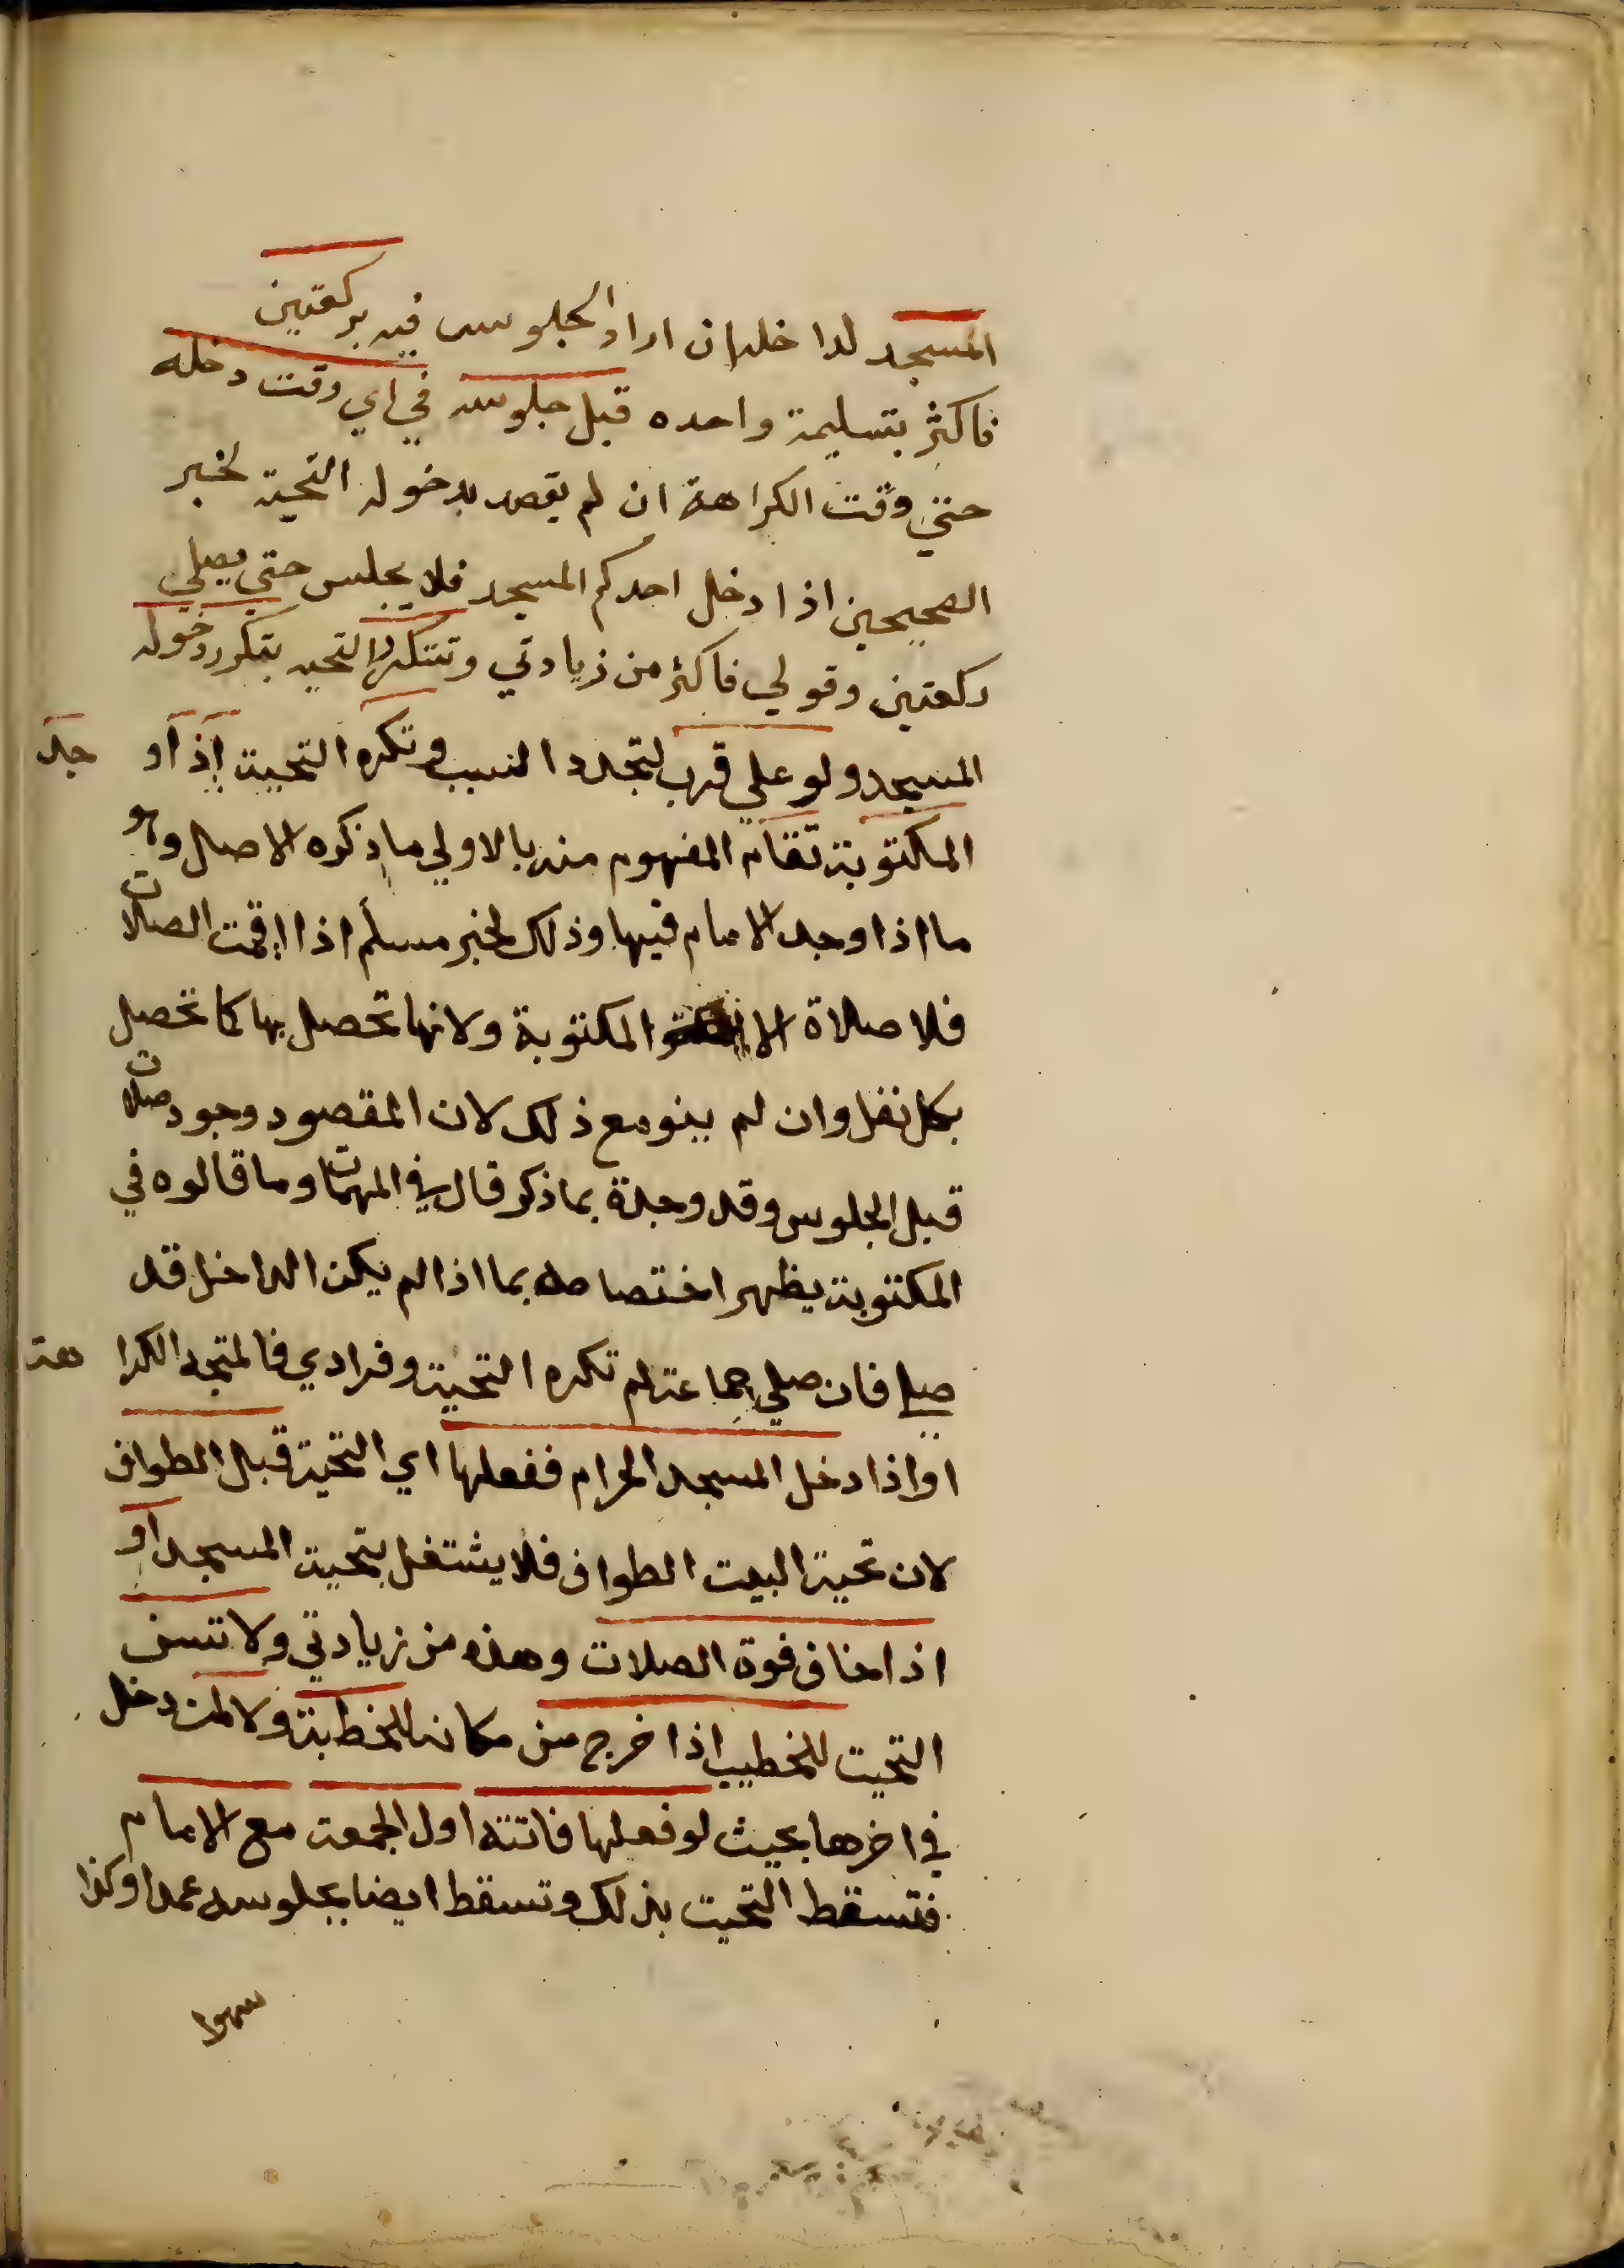 المسجد لداخله ان اراد الجلوس فيه بركعتين
فاكثر بتسليمة واحده قبل جلوسه في اي وقت دخله
حتي وقت الكراهة ان لم يقصد بدخوله التحية لخبر
الصحيحين اذا دخل احدكم المسجد فلا يجلس حتي يصلي
ركعتين وقولي فاكثر من زيادتي وتتكرر التحيه بتكرر دخوله
المسجد ولو علي قرب لتجدد السبب وتكره التحية إذا و جد
المكتوبة تقام المفهوم منه بالاولي ما ذكره الاصل وهو
ما اذا وجد الامام فيها وذلك لخبر مسلم اذا اقمت الصلات
فلا صلاة الا المكتوبة ولانها تحصل بها كما تحصل
بكل نفل وان لم ينو مع ذلك لان المقصود وجود صلات
قبل الجلوس وقد وجدة بما ذكر قال في المهمات وما قالوه في
المكتوبة يظهر اختصاصه بما اذا لم يكن الداخل قد
صلي فان صلي جماعة لم تكره التحية وفرادي فالمتجه الكرا هة
او اذا دخل المسجد الحرام ففعلها اي التحية قبل الطواف
لان تحية البيت الطواف فلا يشتغل بتحية المسجد او
اذا خاف فوة الصلات وهذه من زيادتي ولا تسن
التحيت للخطيب اذا خرج من مكانه للخطبة ولا لمن دخل
في اخرها بحيث لو فعلها فاتته اول الجمعة مع الامام
فتسقط التحيت بذلك وتسقط ايضا بجلوسه عمدا وكذا
سهوا